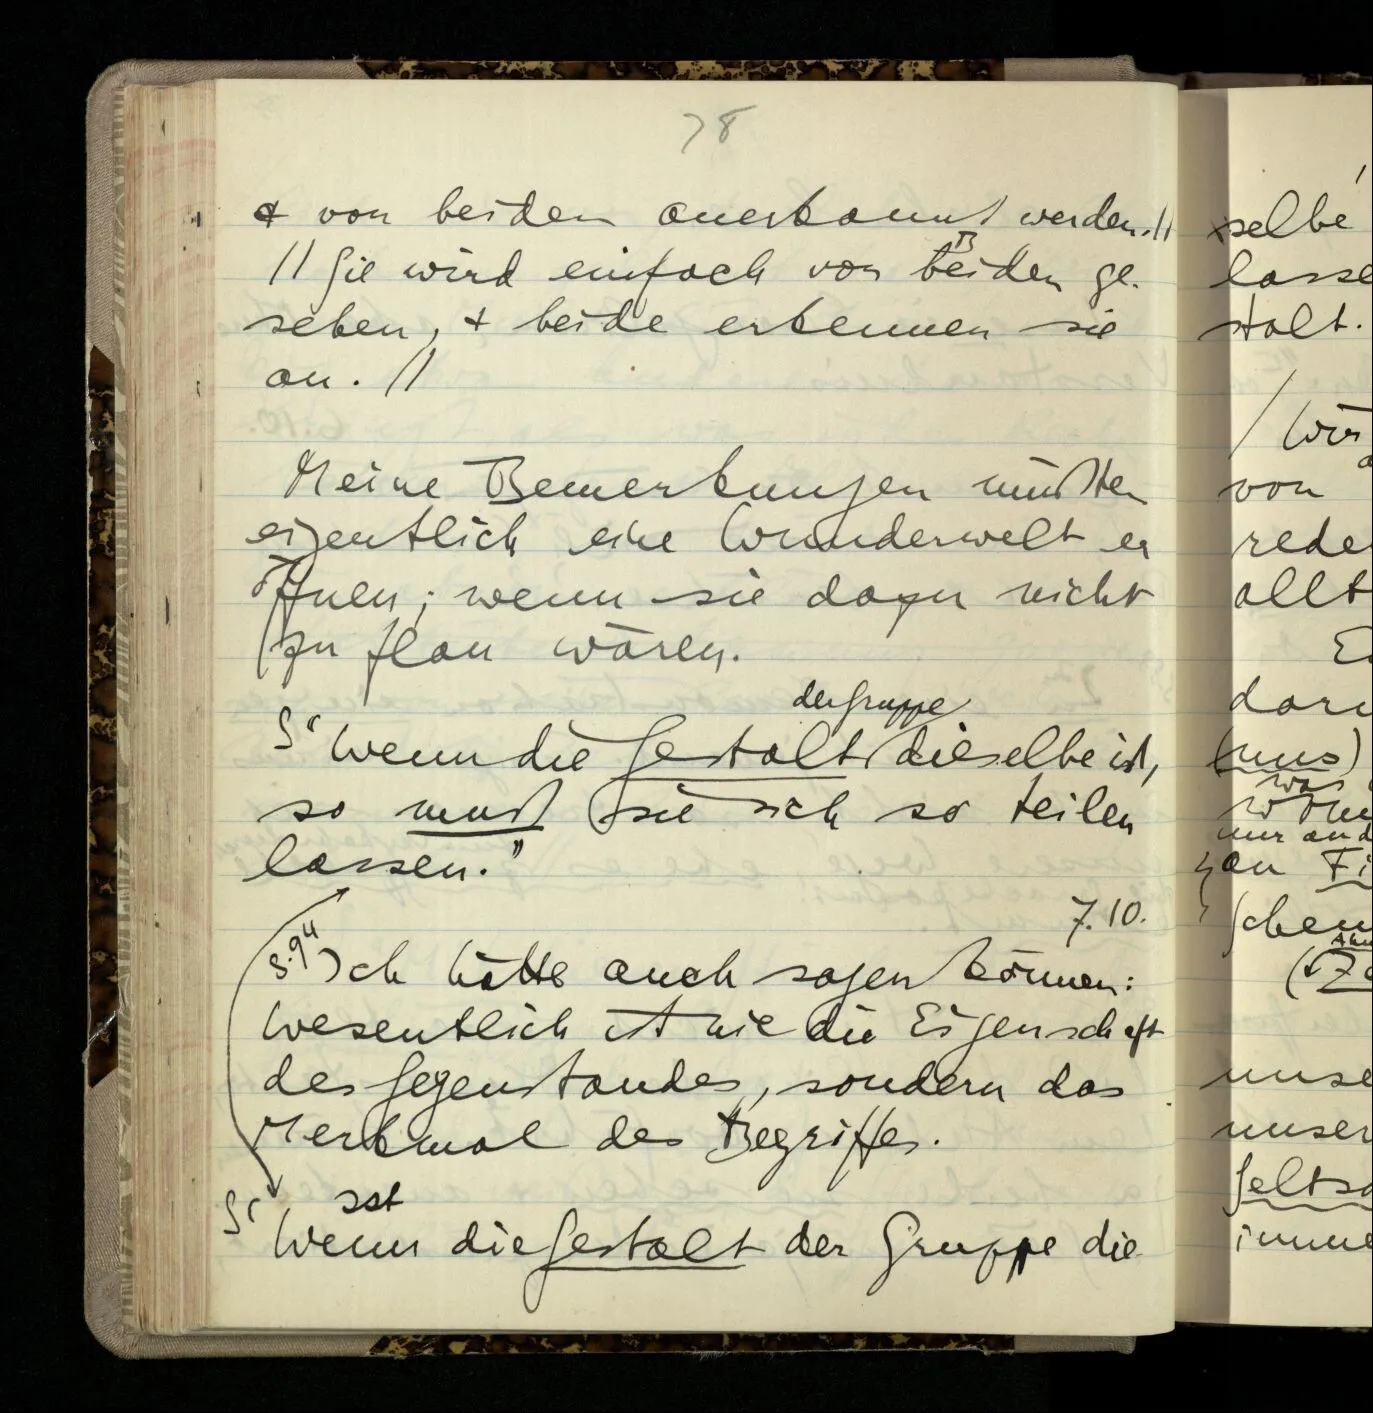 78
& von beiden anerkannt werden.//
// Sie wird einfach von Beiden ge-
sehen, & beide erkennen sie
an. //
Meine Bemerkungen müßten
eigentlich eine Wunderwelt er
öffnen; wenn sie dazu nicht
zu flau wären.
der Gruppe
S “Wenn die Gestalt dieselbe ist,
so muß sie sich so teilen
lassen.”
7.10.
S.94
Ich hätte auch sagen können:
Wesentlich ist nie die Eigenschaft
des Gegenstandes, sondern das
Merkmal des Begriffes.
Ist
S “Wenn die Gestalt der Gruppe die
selbe
lasse
stalt.
/ Wir
von
rede
allt
E
dar
(uns)
was
nur and
an Fi
schen
unse
unser
Seltsa
imme